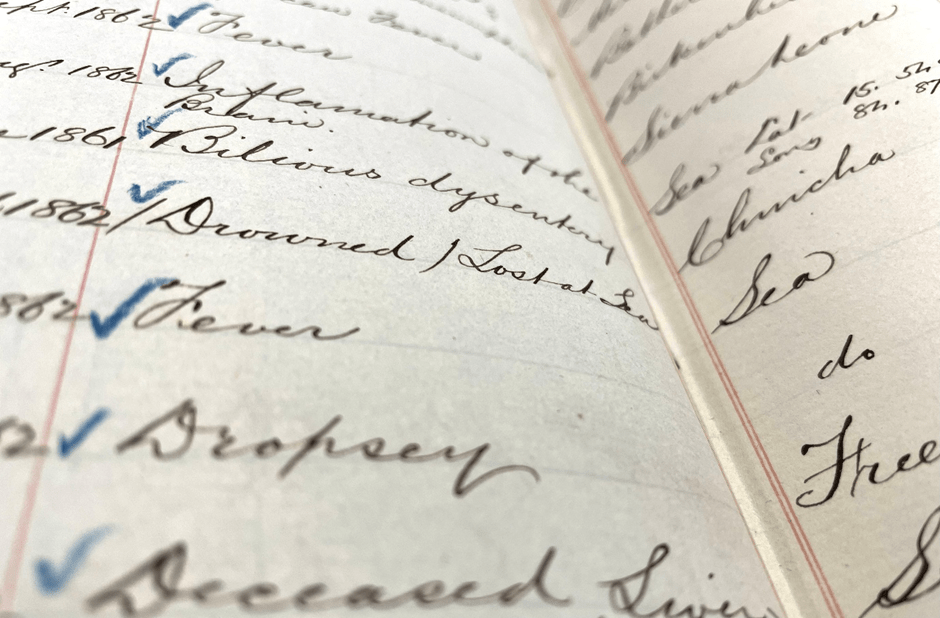 Sept. 1862 Fever
Aug. 1862 Inflamation of the
Brain.
1861 Bilious dysentery
1862 / Drowned / Lost at Sea
1862 Fever
Dropsey
Deceased Liver
Sierra Leone
Sea Lat 15. 54
Long 84. 87
Chincha
Sea
do
Free
S